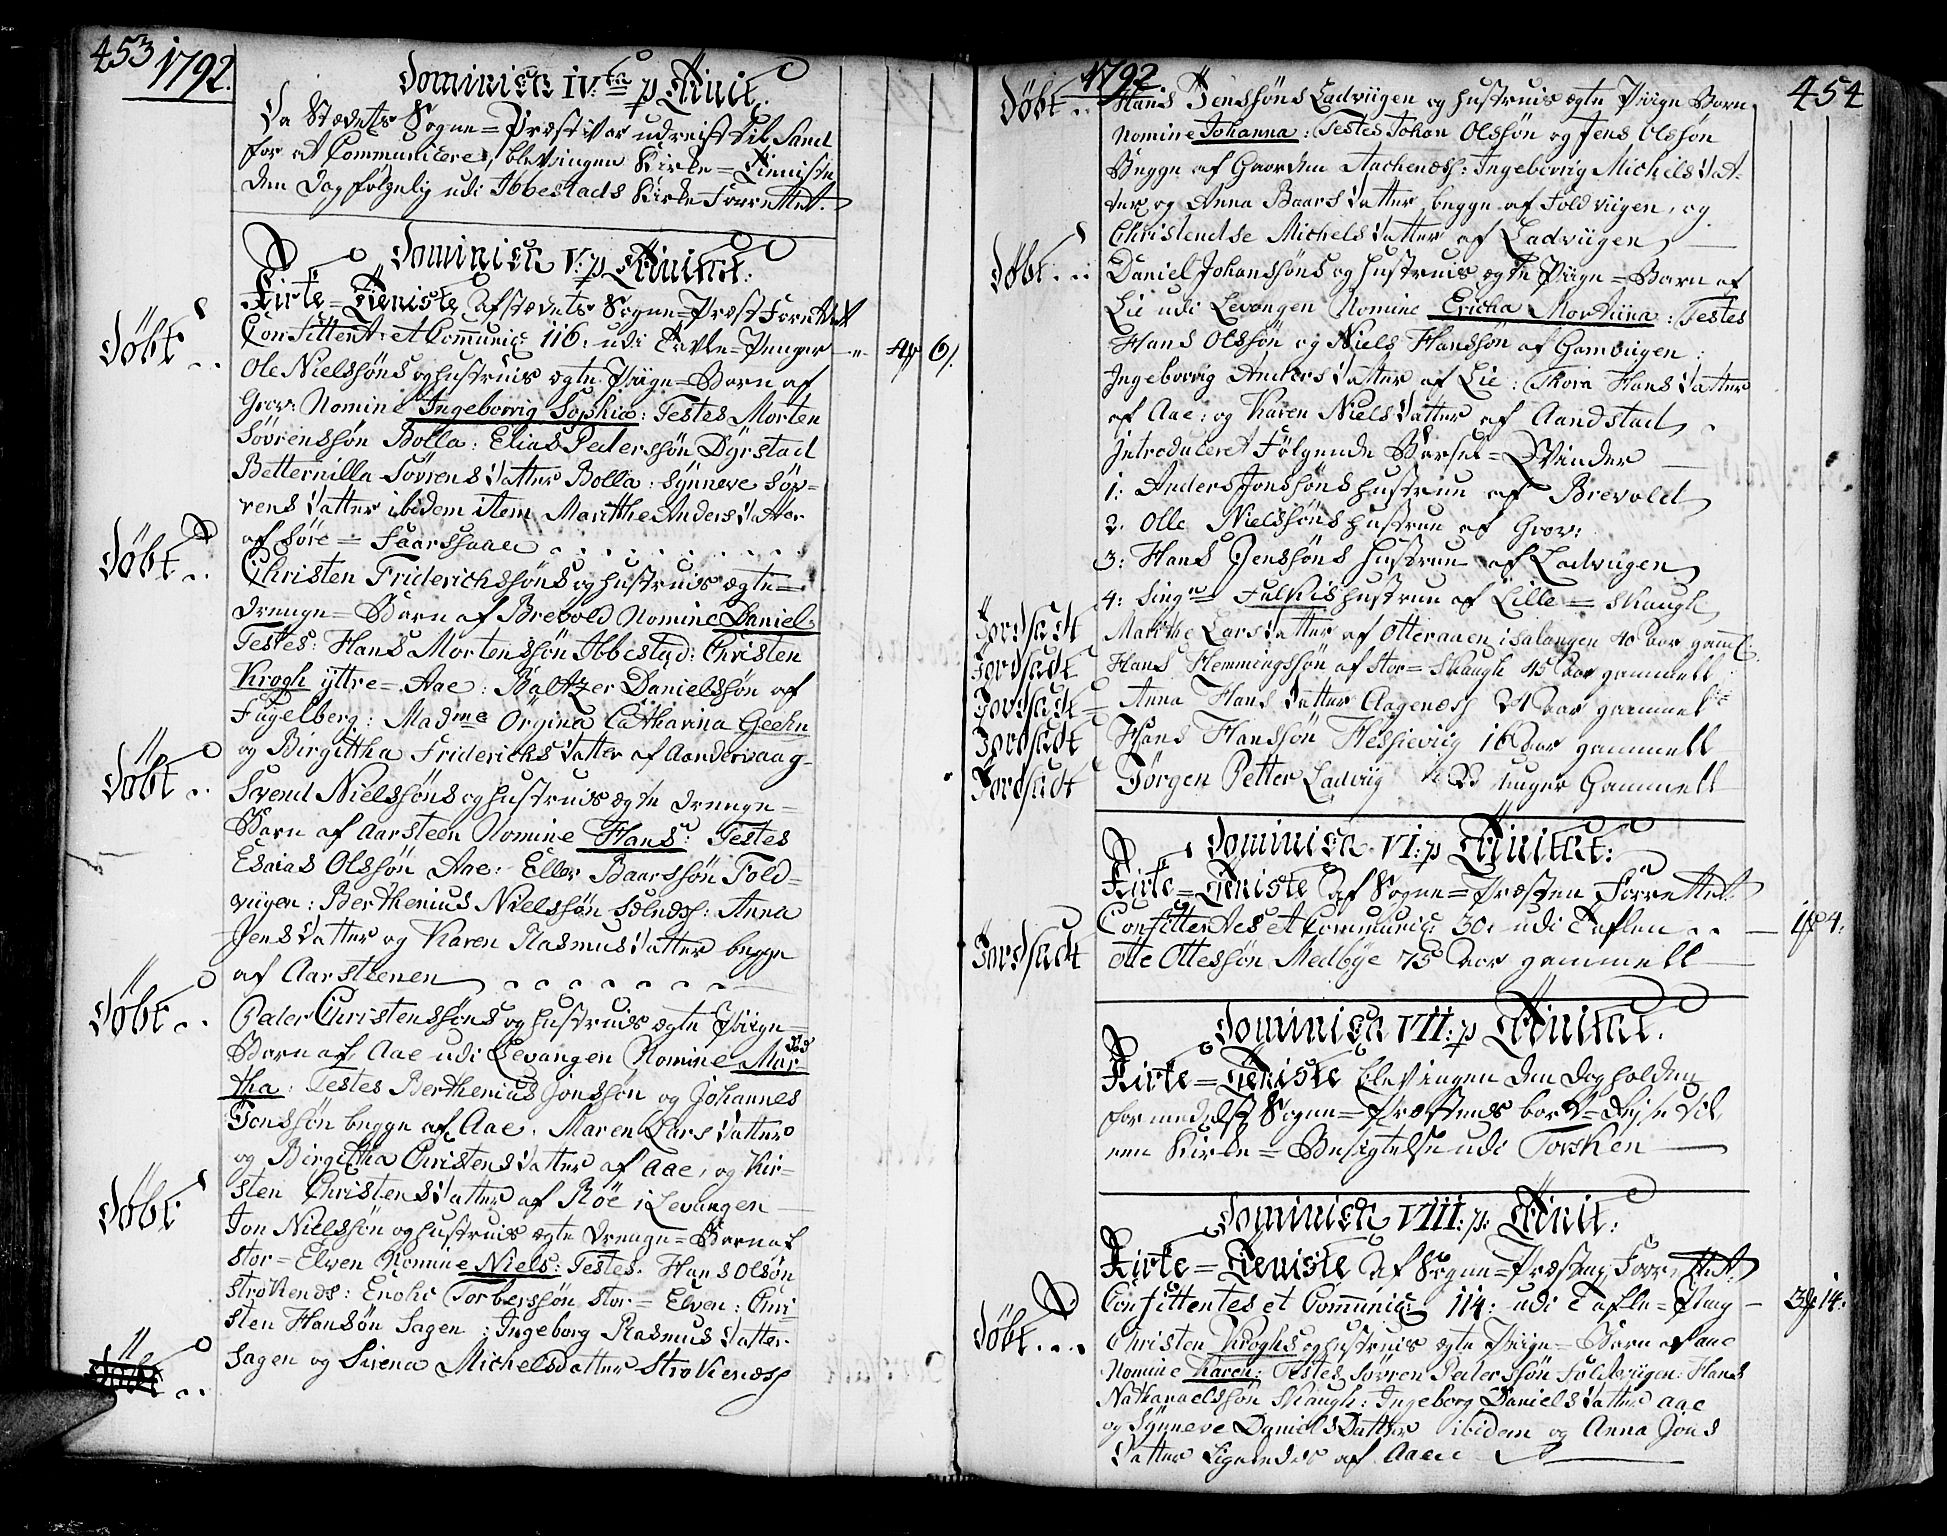 453 1792.
Dominica IV.ta p Trinit.
Da Stædets Sogne=Præst var udreist til Sand
for at Communicere, blev ingen Kirke=Tieniste
den Dag følgelig udi Ibbestads Kirke Forrettet.
Dominica V: p Trinitat:
Kirke=Tieniste af stædets Sogne=Præst Forrettet
Confitent: et Communic: 116: udi Tavle=Penger 4 6
Døbt Ole Nielssøns og hustruis ægte Piige=Barn af
Grov: Nomine Ingeborrig Sophia: Testes Morten
Sövrenssön Bolla: Elias Pederssön Dÿrstad
Betternilla Sövrens Datter Bolla: Sÿnneve Söv=
rens Datter ibidem item Marithe Anders Datter
af Söre=Saarssaae
Døbt Christen Friderichssöns og hustruis ægte=
Drenge=Barn af Brevold Nomine Daniel:
Testes: Hans Mortenssön Ibbestad: Christen
Krogh ÿttre=Aae: Baltzer Danielssön af
Fugelberg: Madme Örgina Catharina Geehn
og Birgittha Friderichs Datter af Aandervaag
Døbt Svend Nielssöns og hustruis ægte Drenge=
Barn af Aarsteen Nomine Hans: Testes
Esaias Olssön Aae: Eller Baarssön Fold=
viigen: Berthenius Nielssön: Anna
Jens Datter og Karen Rasmus Datter begge
af Aarsteenen
Døbt Peder Christenssöns og hustruis ægte Piige
Barn af Aae udi Levangen Nomine Mar=
tha: Testes Berthenius Jonssøn og Johannes
Jonssøn begge af Aae. Maren Lars Datter
og Birgitha Christens Datter af Aae, og Kir=
sten Christens Datter af Röe i Levangen
Døbt Jon Nielssøn og hustruis ægte Drenge=Barn af
Stor=Elven Nomine Niels: Testes. Hans Olsön
Strokends: Enok Torberssön Stor=Elven: Chri=
sten Hansön Sagen: Ingeborg Rasmus Datter
Sagen og Sirena Michelsdatter Strokenæss
1792 454
Døbt Hans Jenssöns Ladviigen og hustruis ægte Piige Barn
Nomine Johanna: Testes Johan Olssøn og Jens Olssøn
Begge af Gaorden Aachenæss: Ingeborrig Michels Dat=
ter og Anna Baars Datter begge af Foldviigen, og
Christendse Michels Datter af Ladviigen
Døbt Daniel Johanssöns og hustruis ægte Piige=Barn af
Lie udi Levangen Nomine Ericha Martiina: Testes
Hans Olssön og Niels Hanssøn af Gamviigen:
Ingeborrig Anders Datter af Lie: Thora Hans Datter
af Aae: og Karen Niels Datter af Aandstad
Introduceret Følgende Barsel=Qvinder
1: Anders Jonssöns hustrue af Brevold
2. Olle Nielssöns hustrue af Grov:
3: Hans Jenssöns hustrue af Ladviigen
4: Sing: Falkis hustrue af Lille=Skaugh
Jordfæst Marthe Lars Datter af Otteraaen i Salangen 40 aar gaml.
Jordfæst Hans Flemmingssøn af Stor=Skaugh 45 aar gammell
Jordfæst Anna Hans Datter Aagenæss 24 aar gammel
Jordfæst Hans Hanssøn Hessieviig 16 aar gammell
Jordfæst Jørgen Petter Ladviig uger Gammell
Dominica VI: p Trinitat:
Kirke=Tieniste af Sogne=Præsten Forrettet.
Confitentes et Communic: 30: udi Taflen 1 4:
Jordfæst Otte Ottessøn Medbÿe 75 aar gammell
Dominica VII: p Trinitat.
Kirke=Tieniste blev ingen den dag holden
formedelst Sogne=Præstens bort=Rejse til
een Kirke=Besigtelse udi Torsken
Dominica VIII: p: Trinit:
Kirke=Tieniste af Sogne=Præsten Forrettet.
Confitentes et Communic: 114: udi Tafle=Peng 3 14:
Døbt Christen Kroghs og hustruis ægte Piige=Barn af Aae
Nomine Karen: Testes Sövren Pederssön Foldviigen: Hans
Nathanaelssøn Skaugh: Ingeborg Daniels Datter Aae
og Sÿnneve Daniels Datter ibidem og Anna Jons
Datter Ligeledes af Aaen